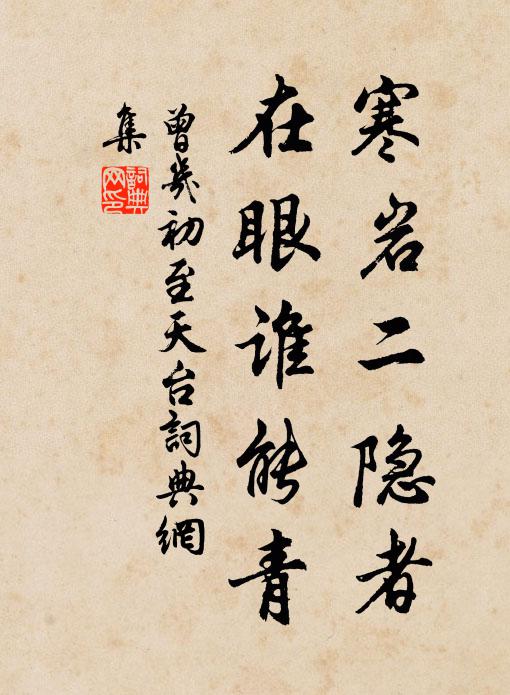 寒岩二隐者
在眼谁能青
曾幾初至天台詞典網
集
詞典网印